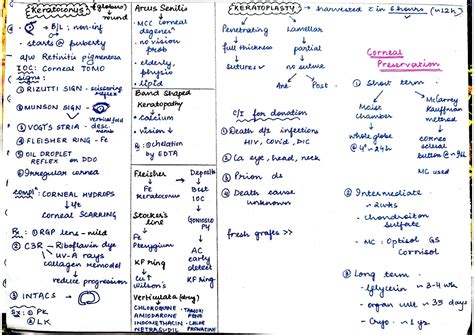 Keratoconus (globus)
↳ round
→ B/L : non-inf
→ starts @ puberty
a/w Retinitis pigmentosa
IOC: Corneal TOMO
signs:
① RIZUTTI SIGN - scissoring reflex
② MUNSON SIGN
③ VOGT'S STRIA - desc. memb
vertical fold
④ FLEISHER RING - Fe
⑤ OIL DROPLET
REFLEX on DDO
⑥ Irregular cornea
compln: CORNEAL HYDROPS
Corneal SCARRING
Rx: ① RGP lens - mild
② C3R - Riboflavin dye
uv-A rays
collagen remodel
reduce progression
③ INTACS
④ PK
⑤ LK
Arcus Senilis
→ MCC corneal
degenen
→ no vision
prob
→ elderly,
physio
→ lipid
Band Shaped
Keratopathy
→ calcium
→ vision ↓
→ Rx: chelation
by EDTA
Fleisher
↓
Fe
keratoconus
Stocker's
line
↓
Fe
Pterygium
KF ring
↓
Cu
Wilson's
Deposits
Best
IOC
GONIOSCO
PY
KF ring
↓
AC
early
detect
Verticulata
CHLOROQUINE
AMIODARONE
INDOMETHACIN
TAMOXI
FENO
KERATOPLASTY → harvested in 6 hours (~12h)
Penetrating
↓
full thickness
↓
sutures
Lamellar
↓
partial
↓
no suture
Ant
Post
C/I for donation
① Death d/t infections
HIV, covid, DIC
② Ca eye, head, neck
③ Prion ds
④ Death cause
unknown
fresh grafts >>
Corneal
Preservation
① Short term
Moist
chamber
↓
whole globe
@ 4° ~24h
McCarey
Kauffman
method
↓
corneo
scleral
button @ 4°
MC used
② Intermediate
~ 2wks
- chondroitin
sulfate
MC: Optisol GS
Cornisol
③ Long term
- glycerin ~ 3-4 wk
- organ ~ 35d
- Cryo ~ 1 yr